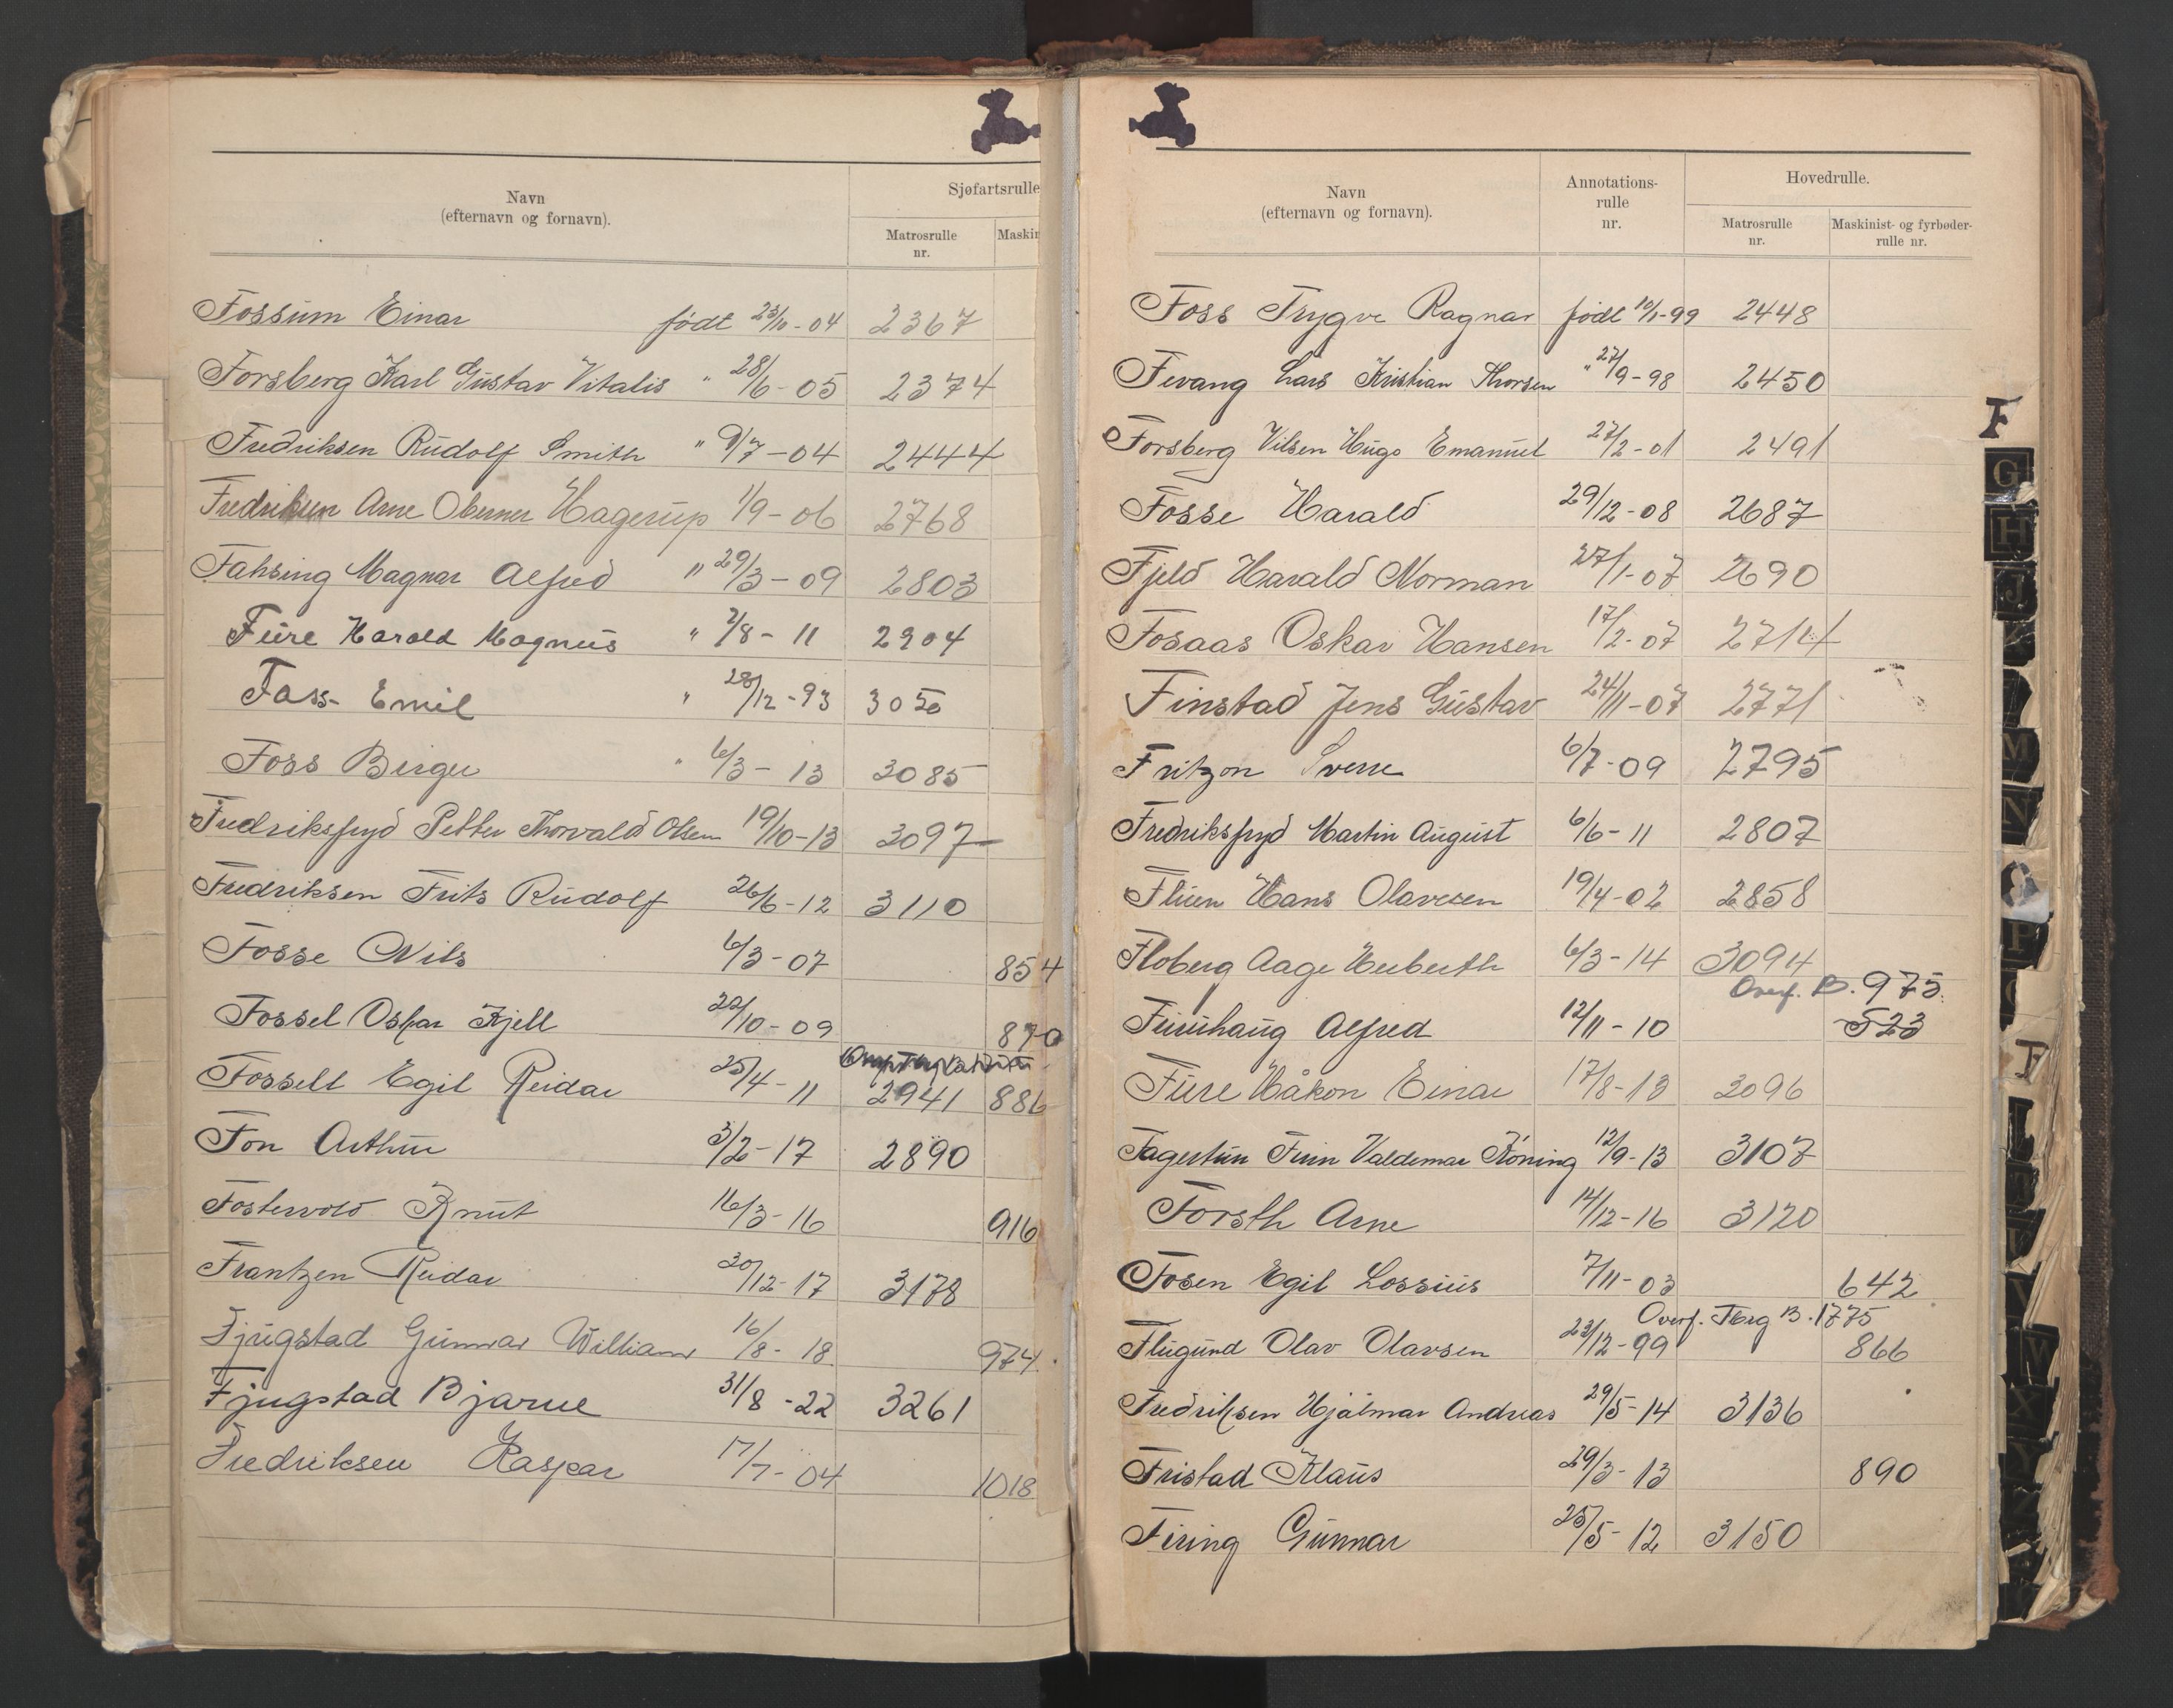 Navn
(efternavn og fornavn).
Sjøfartsrulle
Matrosrulle
nr.
Maskin
Fossum Einar født 23/10-04 2367
Forsberg Karl Gustav Vitalis " 28/6-05 2374
Fredriksen Rudolf Smith " 9/7-04 2444
Fredriksen Arne Hagerup 1/9-06 2768
Fahsing Magnar Alfred " 29/3-09 2803
Fure Harald Magnus " 2/8-11 2904
Foss Emil " 28/12-93 3050
Foss Birger " 6/3-13 3085
Fredriksfryd Petter Thorvald Olsen 19/10-13 3097
Fredriksen Frits Rudolf 26/6-12 3110
Fosse Nils 6/3-07 854
Fossel Oskar Kjell 22/10-09 870
Fossell Egil Reidar 25/4-11 2941 886
Fon Arthur 3/2-17 2890
Fostervold Knut 16/3-16 916
Frantzen Reidar 30/12-17 3178
Fjugstad Gunnar William 16/8-18 974
Fjugstad Bjarne 31/8-22 3261
Fredriksen Kaspar 17/7-04 1018
Navn
(efternavn og fornavn).
Annotations-
rulle
nr.
Hovedrulle.
Matrosrulle
nr.
Maskinist- og fyrbøder-
rulle nr.
Foss Trygve Ragnar født 10/1-99 2448
Fevang Lars Kristian Thorsen " 27/9-98 2450
Forsberg Vilsen Hugo Emanuel 27/2-01 2491
Fosse Harald 29/12-08 2687
Fjeld Harald Norman 27/1-07 2690
Fosaas Oskar Hansen 17/2-07 2714
Finstad Jens Gustav 24/11-07 2771
Fritzon Sverre 6/7-09 2795
Fredriksfryd Martin August 6/6-11 2807
Fluen Hans Olavesen 19/4-02 2858
Floberg Aage Herberth 6/3-14 3094
Overf. B. 975
Furuhaug Alfred 12/11-10 523
Fure Håkon Einar 17/8-13 3096
Fagertun Finn Valdemar Köning 12/9-13 3107
Forsth Arne 14/12-16 3120
Fosen Egil Lossius 7/11-03 642
Overf. Tbrg B. 1775
Flugund Olav Olavsen 23/12-99 866
Fredriksen Hjalmar Andreas 29/5-14 3136
Fristad Klaus 29/3-13 890
Firing Gunnar 25/5-12 3150
F
G
H
J
M
N
P
W
X